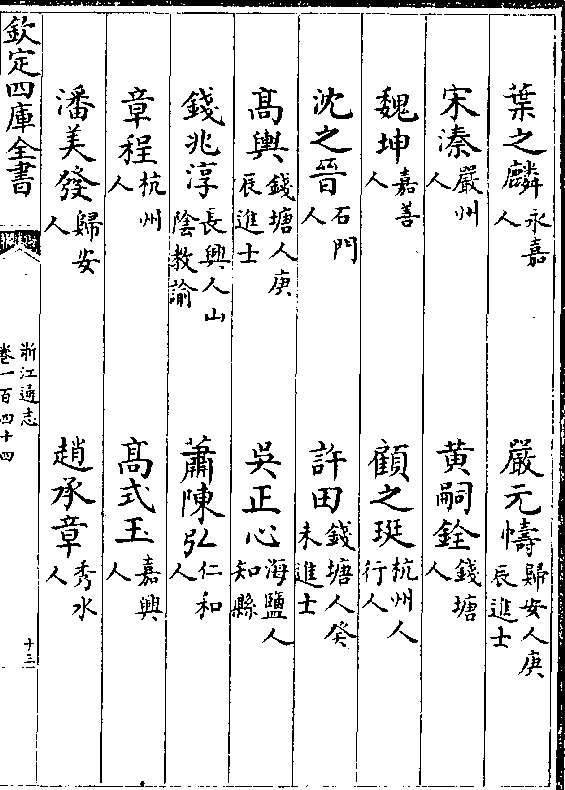 葉之麟永嘉人 嚴元幬歸安人庚辰進士
宋溱嚴州人 黄嗣銓錢塘人
魏坤嘉善人 顧之珽杭州人行人
沈之晉石門人 許田錢塘人癸未進士
髙輿錢塘人庚辰進士 吳正心海鹽人知縣
錢兆淳長興人山陰教諭 蕭陳弘仁和人
章程杭州人 髙式玉嘉興人
潘美發歸安人 趙承章秀水人
欽定四庫全書 浙江通志卷一百四十四 十三